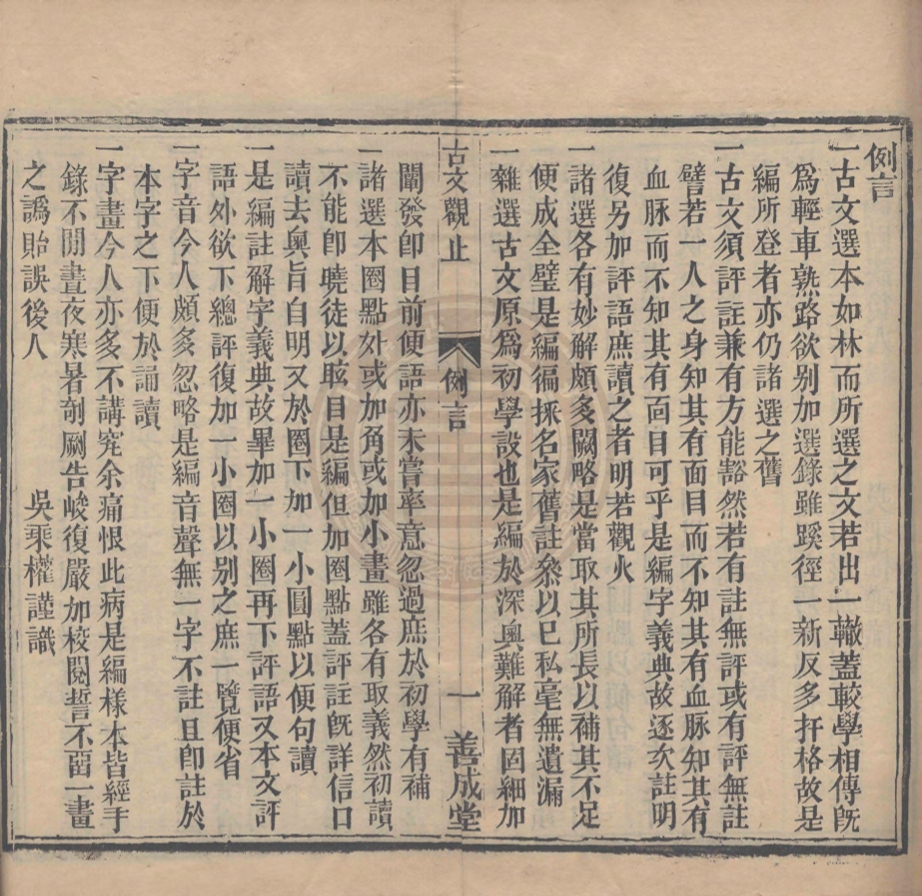 例言
一古文選本如林而所選之文若出一轍蓋較學相傳旣
為輕車熟路欲別加選錄雖蹊徑一新反多扞格故是
編所登者亦仍諸選之舊
一古文須評註兼有方能豁然若有註無評或有評無註
譬若一人之身知其有面目而不知其有血脉知其有
血脉而不知其有面目可乎是編字義典故逐次註明
復另加評語庶讀之者明若觀火
一諸選各有妙解頗多闕略是當取其所長以補其不足
便成全璧是編徧採名家舊註叅以已私毫無遺漏
一雜選古文原爲初學設也是編於深奧難解者固細加
古文觀止 例言 一 善成堂
闡發卽目前便語亦未嘗率意忽過庶於初學有補
一諸選本圈點外或加角或加小畫雖各有取義然初讀
不能卽曉徒以眩目是編但加圈點蓋評註旣詳信口
讀去奧旨自明又於圈下加一小圓點以便句讀
一是編註解字義典故畢加一小圈再下評語又本文評
語外欲下總評復加一小圈以别之庶一覽便省
一字音今人頗多忽略是編音聲無一字不註且卽註於
本字之下便於誦讀
一字畫今人亦多不講究余痛恨此病是編樣本皆經手
錄不閒晝夜寒暑剞劂告峻復嚴加校閱誓不畱一畫
之譌貽誤後人
吳乘權謹識